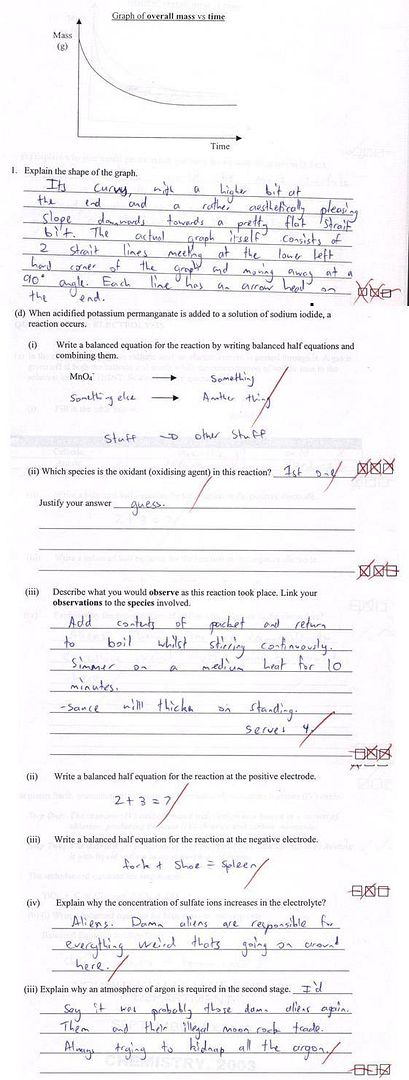 Graph of overall mass vs time
Mass
(g)
Time
1. Explain the shape of the graph.
Its curvy, with a higher bit at
the end and a rather aesthetically pleasing
slope downwards towards a pretty flat strait
bit. The actual graph itself consists of
2 strait lines meeting at the lower left
hand corner of the graph and moving away at a
90° angle. Each line has an arrow head on
the end.
(d) When acidified potassium permanganate is added to a solution of sodium iodide, a
reaction occurs.
(i) Write a balanced equation for the reaction by writing balanced half equations and
combining them.
MnO₄⁻ → Something
Something else → Another thing
Stuff → other stuff
(ii) Which species is the oxidant (oxidising agent) in this reaction? 1st one
Justify your answer guess.
(iii) Describe what you would observe as this reaction took place. Link your
observations to the species involved.
Add contents of packet and return
to boil whilst stirring continuously.
Simmer on a medium heat for 10
minutes.
-sauce will thicken on standing.
serves 4.
(ii) Write a balanced half equation for the reaction at the positive electrode.
2 + 3 = 7
(iii) Write a balanced half equation for the reaction at the negative electrode.
fork + Shoe = Spleen
(iv) Explain why the concentration of sulfate ions increases in the electrolyte?
Aliens. Damn aliens are responsible for
everything weird thats going on around
here.
(iii) Explain why an atmosphere of argon is required in the second stage. I'd
Say it was probably those damn aliens again.
Them and their illegal moon rock trade.
Always trying to kidnap all the argon.